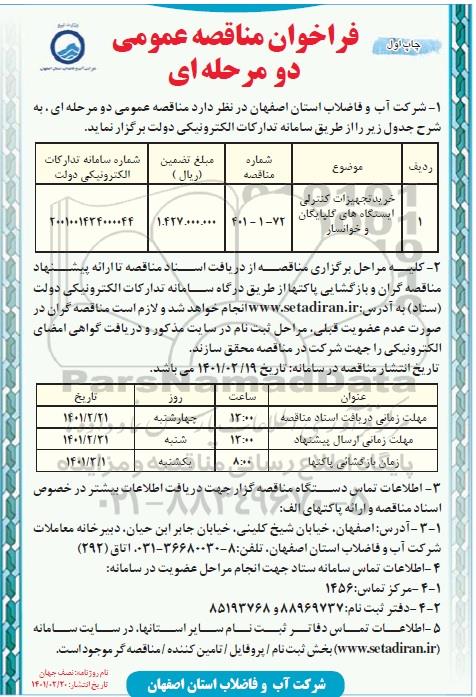 وزارت نیرو
شرکت آب و فاضلاب استان اصفهان
چاپ اول
فراخوان مناقصه عمومی
دو مرحله ای
۱- شرکت آب و فاضلاب استان اصفهان در نظر دارد مناقصه عمومی دو مرحله ای، به
شرح جدول زیر را از طریق سامانه تدارکات الکترونیکی دولت برگزار نماید.
ردیف موضوع شماره مناقصه مبلغ تضمین (ریال) شماره سامانه تدارکات الکترونیکی دولت
۱ خرید تجهیزات کنترلی ایستگاه های گلپایگان و خوانسار ۴۰۱-۱-۷۲ ۱.۴۲۷.۰۰۰.۰۰۰ ۲۰۰۱۰۰۱۴۲۴۰۰۰۰۴۴
۲- کلیه مراحل برگزاری مناقصه از دریافت اسناد مناقصه تا ارائه پیشنهاد
مناقصه گران و بازگشایی پاکتها از طریق درگاه سامانه تدارکات الکترونیکی دولت
(ستاد) به آدرس: www.setadiran.ir انجام خواهد شد و لازم است مناقصه گران در
صورت عدم عضویت قبلی، مراحل ثبت نام در سایت مذکور و دریافت گواهی امضای
الکترونیکی را جهت شرکت در مناقصه محقق سازند.
تاریخ انتشار مناقصه در سامانه: تاریخ ۱۴۰۱/۰۲/۱۹ می باشد.
عنوان ساعت روز تاریخ
مهلت زمانی دریافت اسناد مناقصه ۱۲:۰۰ چهارشنبه ۱۴۰۱/۲/۲۱
مهلت زمانی ارسال پیشنهاد ۱۲:۰۰ شنبه ۱۴۰۱/۲/۲۱
زمان بازگشائی پاکتها ۸:۰۰ یکشنبه ۱۴۰۱/۳/۱
۳- اطلاعات تماس دستگاه مناقصه گزار جهت دریافت اطلاعات بیشتر در خصوص
اسناد مناقصه و ارائه پاکتهای الف:
۳-۱- آدرس: اصفهان، خیابان شیخ کلینی، خیابان جابر ابن حیان، دبیرخانه معاملات
شرکت آب و فاضلاب استان اصفهان، تلفن: ۸-۳۶۶۸۰۰۳۰-۰۳۱ (اتاق ۲۹۲)
۴- اطلاعات تماس سامانه ستاد جهت انجام مراحل عضویت در سامانه:
۴-۱- مرکز تماس: ۱۴۵۶
۴-۲- دفتر ثبت نام: ۸۸۹۶۹۷۳۷ و ۸۵۱۹۳۷۶۸
۵- اطلاعات تماس دفاتر ثبت نام سایر استانها، در سایت سامانه
(www.setadiran.ir) بخش ثبت نام / پروفایل / تامین کننده / مناقصه گر موجود است.
نام روزنامه: نصف جهان
تاریخ انتشار: ۱۴۰۱/۰۲/۲۰
شرکت آب و فاضلاب استان اصفهان
ParsNamadData
۰۲۱-۸۸۳۴۹۶۷۰-۵